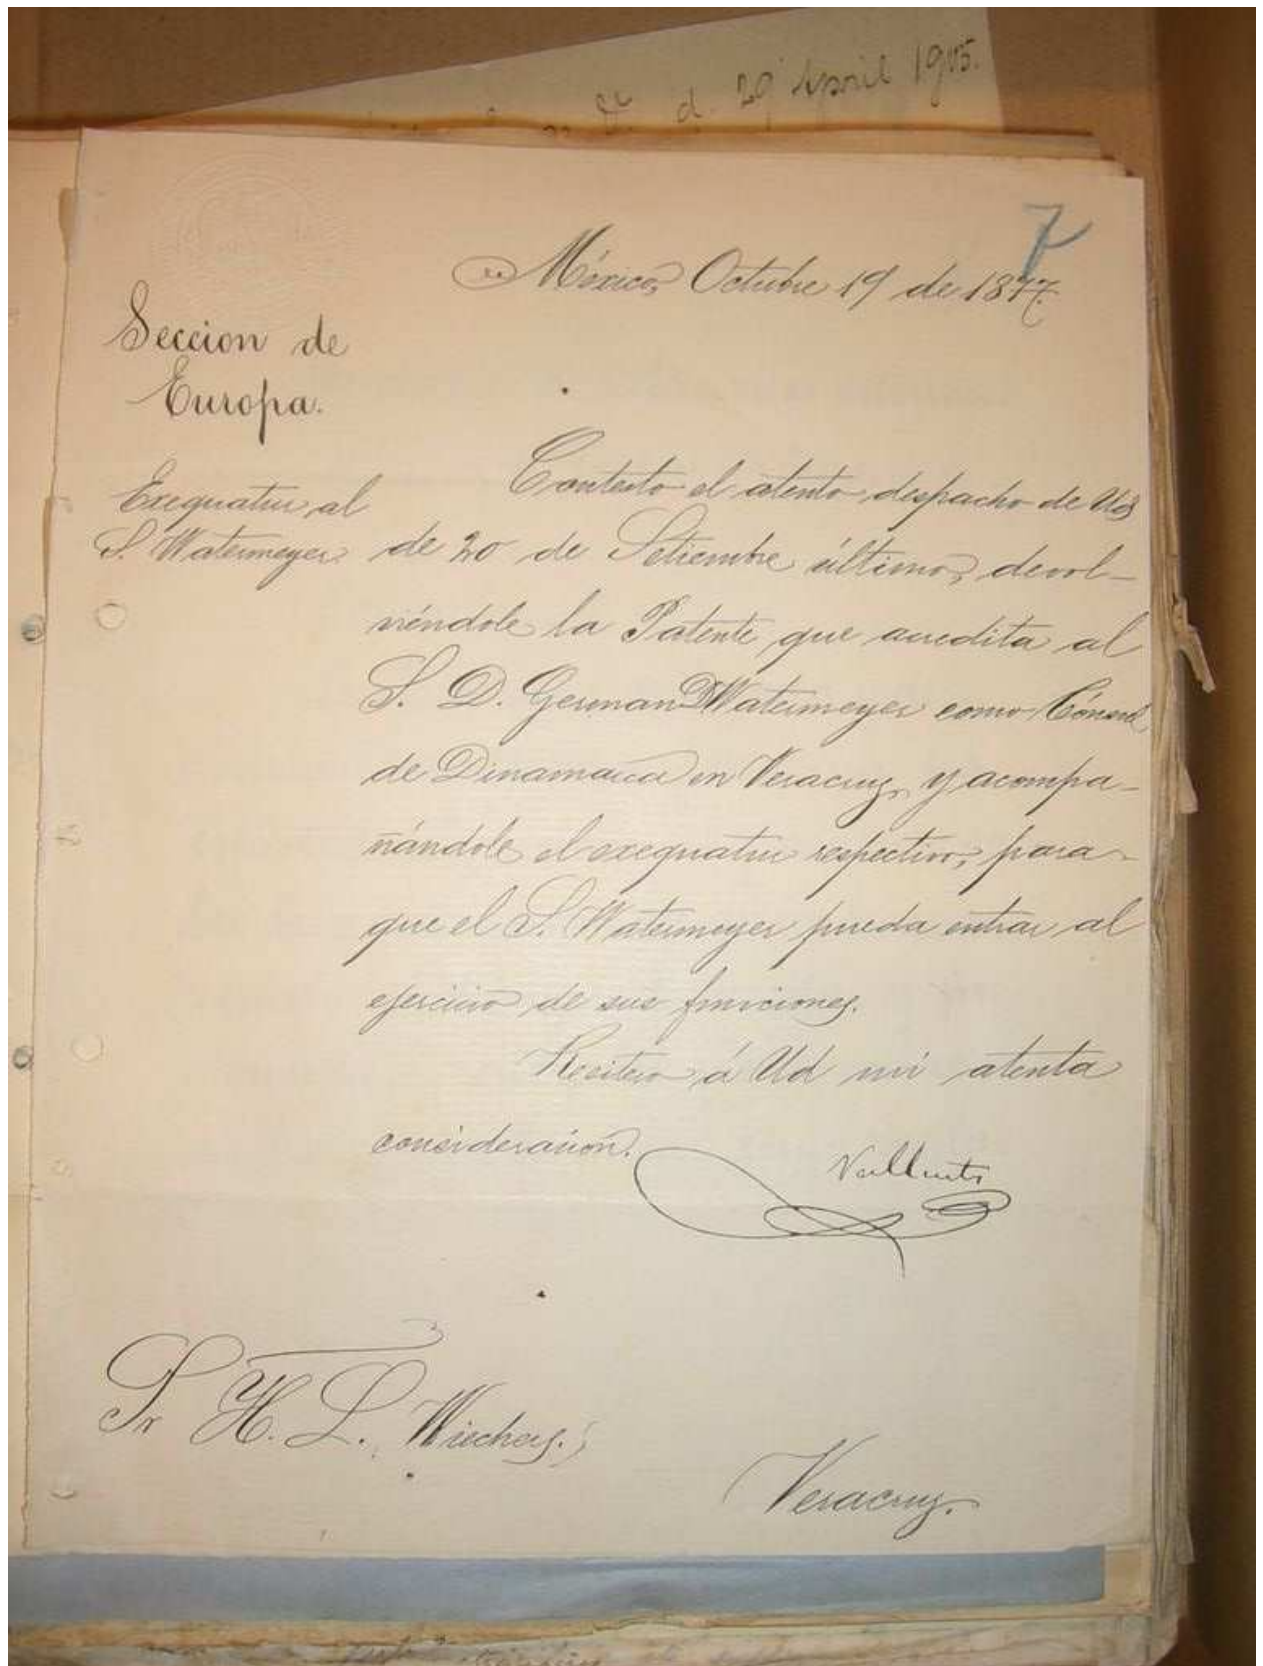 d. 29 April 1905.
7
México, Octubre 19 de 1877.
Seccion de
Europa.
Exequatur al
S. Watermeyer
Contesto el atento despacho de Ud
de 20 de Setiembre último, devol-
viéndole la Patente que acredita al
S. D. German D Watermeyer como Cónsul
de Dinamarca en Veracruz, y acompa-
ñándole el exequatur respectivo, para
que el S. Watermeyer pueda entrar al
ejercicio de sus funciones.
Reitero á Ud mi atenta
consideracion.
Vallarta
Sr H. L. Wiechers.
Veracruz.